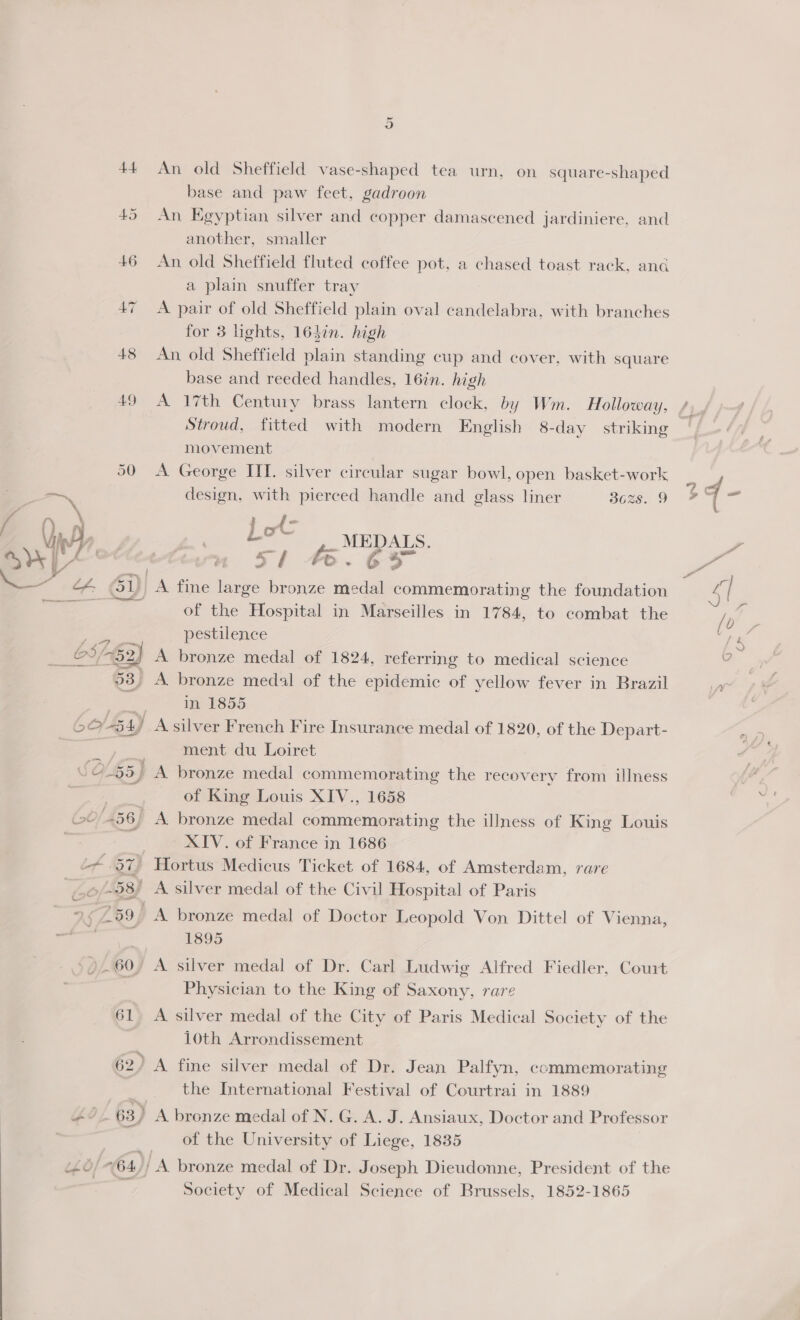 5
44 An old Sheffield vase-shaped tea urn, on square-shaped
base and paw feet, gadroon
45 An Egyptian silver and copper damascened jardiniere, and
another, smaller
46 An old Sheffield fluted coffee pot, a chased toast rack, and
a plain snuffer tray
47 A pair of old Sheffield plain oval candelabra, with branches
for 3 lights, 16½in. high
48 An old Sheffield plain standing cup and cover, with square
base and reeded handles, 16in. high
49 A 17th Century brass lantern clock, by Wm. Holloway,
Stroud, fitted with modern English 8-day striking
movement
50 A George III. silver circular sugar bowl, open basket-work
design, with pierced handle and glass liner 3ozs. 9
Lots
MEDALS.
51 to. 65
51 A fine large bronze medal commemorating the foundation
of the Hospital in Marseilles in 1784, to combat the
pestilence
52 A bronze medal of 1824, referring to medical science
53 A bronze medal of the epidemic of yellow fever in Brazil
in 1855
54 A silver French Fire Insurance medal of 1820, of the Depart-
ment du Loiret
55 A bronze medal commemorating the recovery from illness
of King Louis XIV., 1658
56 A bronze medal commemorating the illness of King Louis
XIV. of France in 1686
57 Hortus Medicus Ticket of 1684, of Amsterdam, rare
58 A silver medal of the Civil Hospital of Paris
59 A bronze medal of Doctor Leopold Von Dittel of Vienna,
1895
60 A silver medal of Dr. Carl Ludwig Alfred Fiedler, Court
Physician to the King of Saxony, rare
61 A silver medal of the City of Paris Medical Society of the
10th Arrondissement
62 A fine silver medal of Dr. Jean Palfyn, commemorating
the International Festival of Courtrai in 1889
63 A bronze medal of N. G. A. J. Ansiaux, Doctor and Professor
of the University of Liege, 1835
64 A bronze medal of Dr. Joseph Dieudonne, President of the
Society of Medical Science of Brussels, 1852-1865